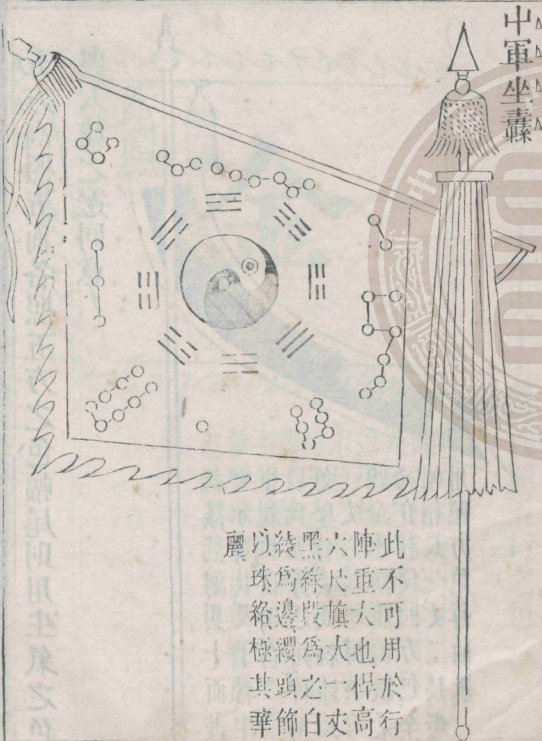 中軍坐纛
此不可用於行
陣重大也桿高
六尺旗大一丈
黑綠段爲之白
綾爲邊纓頭飾
以珠絡極其華
麗